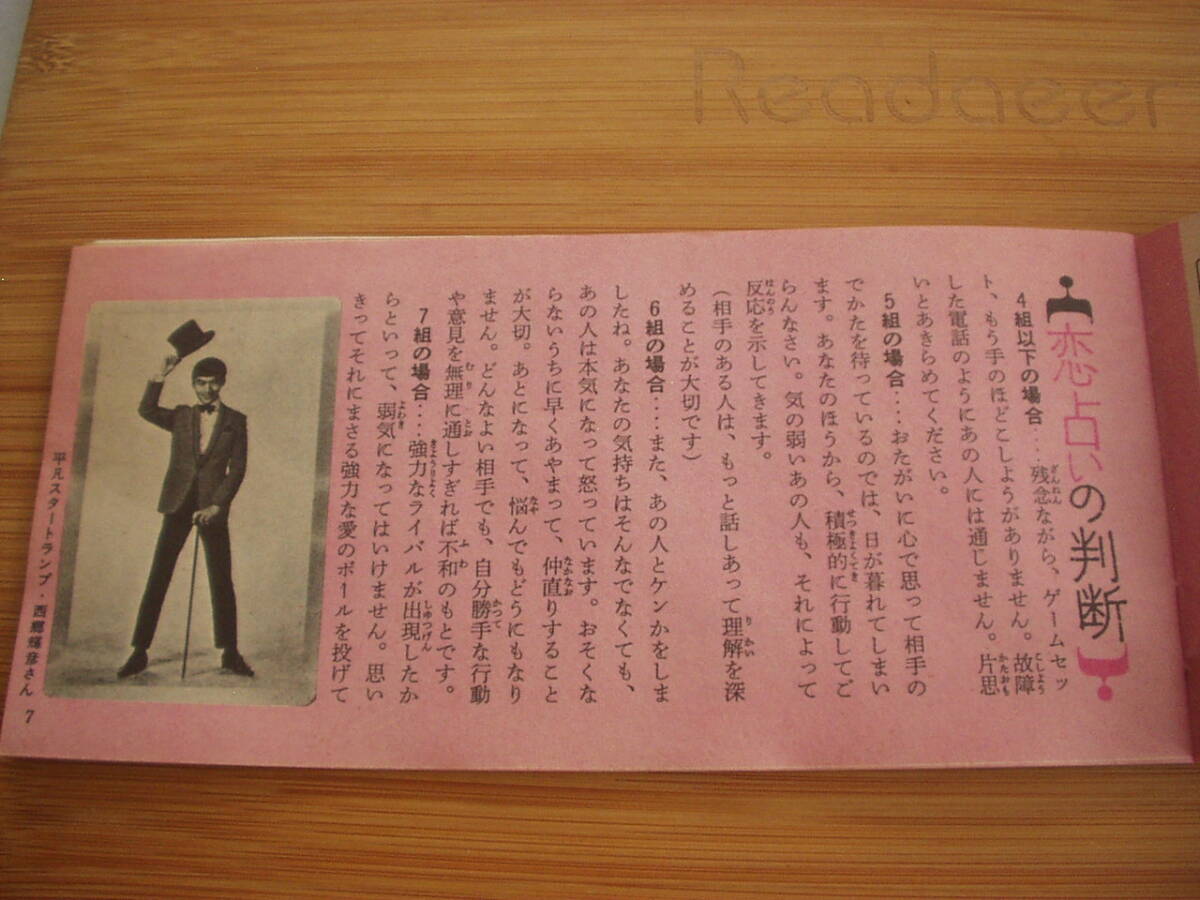 Readaeer
恋占いの判断
4組以下の場合‥‥残念ながら、ゲームセッ
ト、もう手のほどこしようがありません。故障
した電話のようにあの人には通じません。片思
いとあきらめてください。
5組の場合‥‥おたがいに心で思って相手の
でかたを待っているのでは、日が暮れてしまい
ます。あなたのほうから、積極的に行動してご
らんなさい。気の弱いあの人も、それによって
反応を示してきます。
(相手のある人は、もっと話しあって理解を深
めることが大切です)
6組の場合‥‥また、あの人とケンかをしま
したね。あなたの気持ちはそんなでなくても、
あの人は本気になって怒っています。おそくな
らないうちに早くあやまって、仲直りすること
が大切。あとになって、悩んでもどうにもなり
ません。どんなよい相手でも、自分勝手な行動
や意見を無理に通しすぎれば不和のもとです。
7組の場合‥‥強力なライバルが出現したか
らといって、弱気になってはいけません。思い
きってそれにまさる強力な愛のボールを投げて
平凡スタートランプ・西郷輝彦さん
7